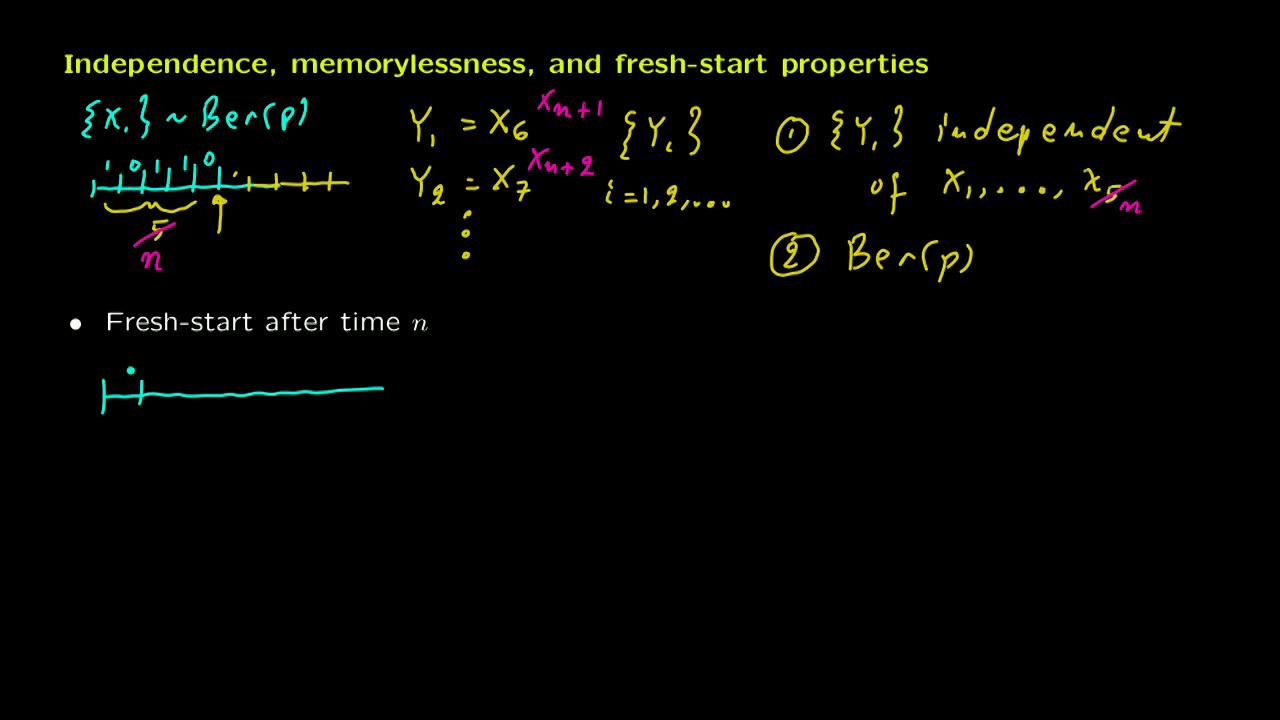 Independence, memorylessness, and fresh-start properties
{Xi} ~ Ber(p)
1 0 1 1 0
5
n
Y1 = X6 Xn+1
Y2 = X7 Xn+2
{Yi}
i=1,2,...
① {Yi} independent
of X1, ..., X5 n
② Ber(p)
• Fresh-start after time n